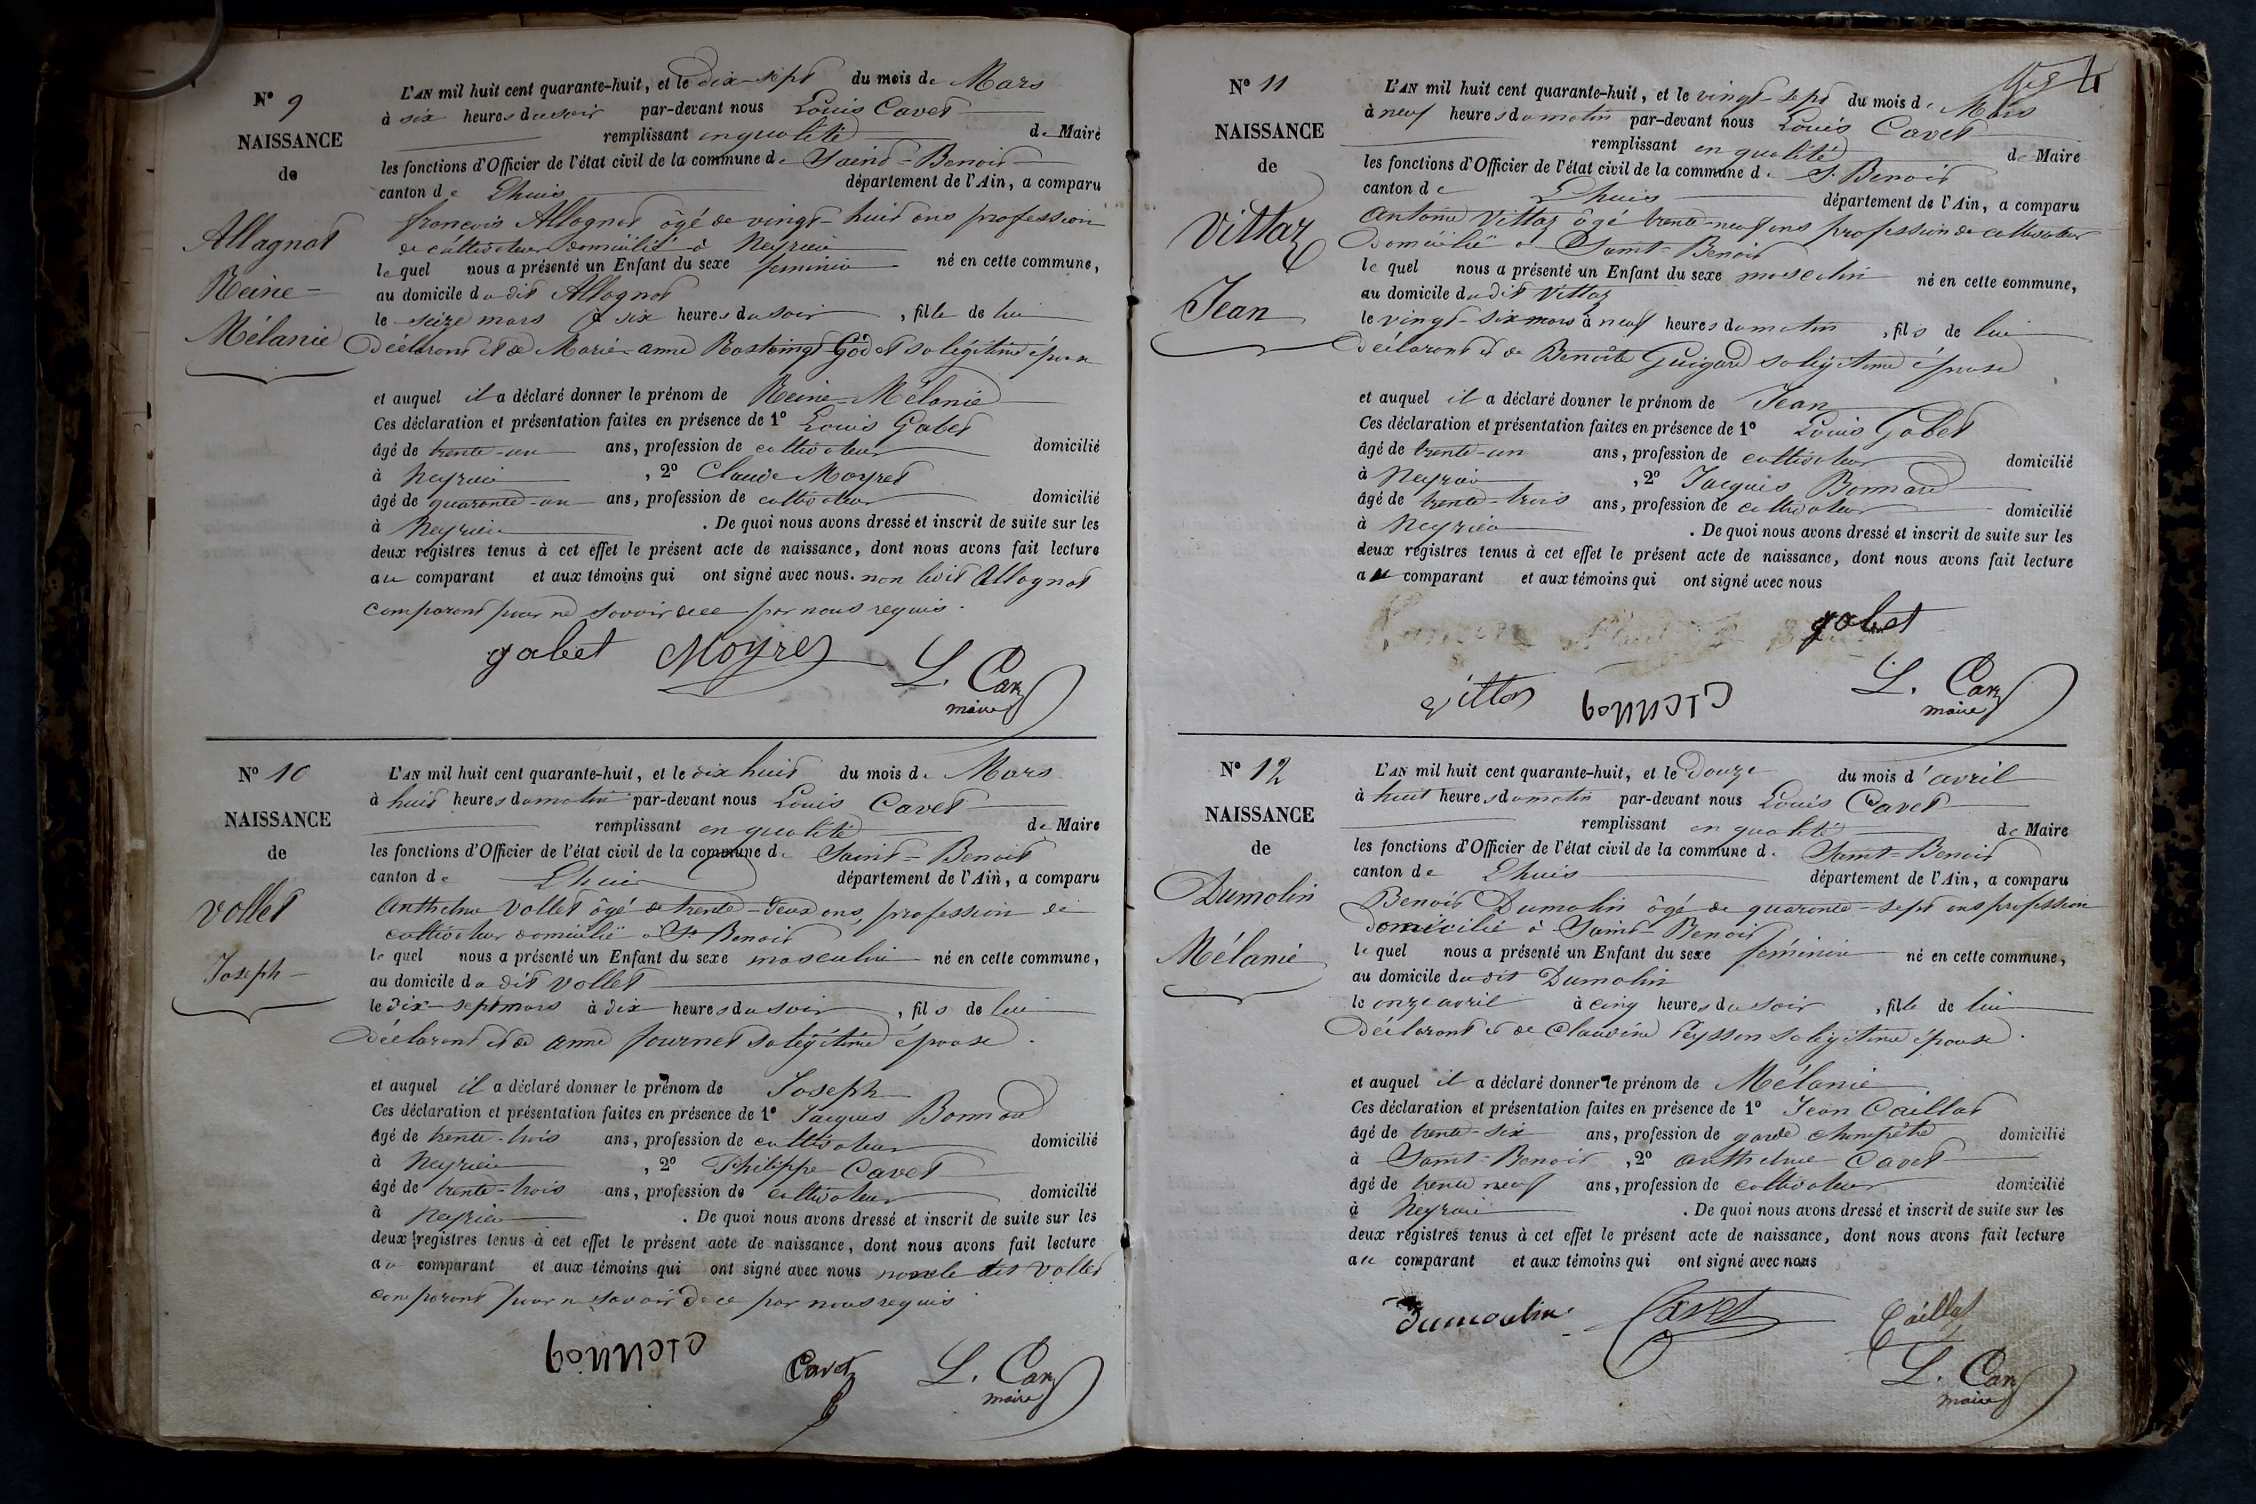 N° 9
NAISSANCE
de
Allagnat
Reine=
Mélanie
L'AN mil huit cent quarante-huit, et le dix-sept du mois de Mars
à six heures du soir par-devant nous Louis Cavet
remplissant en qualité de Maire
les fonctions d'Officier de l'état civil de la commune de Saint=Benoit
canton de Lhuis département de l'Ain, a comparu
françois Allagnat âgé de vingt-huit ans profession
de cultivateur domicilié à Neyrieu
lequel nous a présenté un Enfant du sexe feminin né en cette commune,
au domicile du dit Allagnat
le seize mars à six heures du soir, fille de lui
Déclarant et de Marie-anne sa légitime épouse
et auquel il a déclaré donner le prénom de Reine=Mélanie
Ces déclaration et présentation faites en présence de 1° Louis Gabet
âgé de trente-un ans, profession de cultivateur domicilié
à Neyrieu, 2° Claude Moyret
âgé de quarante-un ans, profession de cultivateur domicilié
à Neyrieu. De quoi nous avons dressé et inscrit de suite sur les
deux registres tenus à cet effet le présent acte de naissance, dont nous avons fait lecture
au comparant et aux témoins qui ont signé avec nous. non ledit Allagnat
comparant pour ne savoir de ce par nous requis.
gabet Moyret L. Cavet
maire
N° 10
NAISSANCE
de
Vollet
Joseph
L'AN mil huit cent quarante-huit, et le dix huit du mois de Mars
à huit heures du matin par-devant nous Louis Cavet
remplissant en qualité de Maire
les fonctions d'Officier de l'état civil de la commune de Saint=Benoit
canton de Lhuis département de l'Ain, a comparu
Anthelme Vollet âgé de trente-deux ans, profession de
cultivateur domicilié à St Benoit
lequel nous a présenté un Enfant du sexe masculin né en cette commune,
au domicile du dit Vollet
le dix-sept mars à dix heures du soir, fils de lui
Déclarant et de anne fournet sa légitime épouse.
et auquel il a déclaré donner le prénom de Joseph
Ces déclaration et présentation faites en présence de 1° Jacques Bonnard
âgé de trente-trois ans, profession de cultivateur domicilié
à Neyrieu, 2° Philippe Cavet
âgé de trente-trois ans, profession de cultivateur domicilié
à Neyrieu. De quoi nous avons dressé et inscrit de suite sur les
deux registres tenus à cet effet le présent acte de naissance, dont nous avons fait lecture
au comparant et aux témoins qui ont signé avec nous non le dit Vollet
comparant pour ne savoir de ce par nous requis
Cavet L. Cavet
maire
N° 11
NAISSANCE
de
Vittaz
Jean
4
L'AN mil huit cent quarante-huit, et le vingt-sept du mois de Mars
à neuf heures du matin par-devant nous Louis Cavet
remplissant en qualité de Maire
les fonctions d'Officier de l'état civil de la commune de St Benoit
canton de Lhuis département de l'Ain, a comparu
Antoine Vittaz âgé trente-neuf ans profession de cultivateur
Domicilié à Saint=Benoit
lequel nous a présenté un Enfant du sexe masculin né en cette commune,
au domicile du dit Vittaz
le vingt-six mars à neuf heures du matin, fils de lui
Déclarant et de Benoîte Guigard sa légitime épouse
et auquel il a déclaré donner le prénom de Jean
Ces déclaration et présentation faites en présence de 1° Louis Gabet
âgé de trente-un ans, profession de cultivateur domicilié
à Neyrieu, 2° Jacques Bonnard
âgé de trente-trois ans, profession de cultivateur domicilié
à Neyrieu. De quoi nous avons dressé et inscrit de suite sur les
deux registres tenus à cet effet le présent acte de naissance, dont nous avons fait lecture
au comparant et aux témoins qui ont signé avec nous
gabet
vittaz L. Cavet
maire
N° 12
NAISSANCE
de
Dumolin
Mélanie
L'AN mil huit cent quarante-huit, et le Douze du mois d'avril
à huit heures du matin par-devant nous Louis Cavet
remplissant en qualité de Maire
les fonctions d'Officier de l'état civil de la commune d. Saint=Benoit
canton de Lhuis département de l'Ain, a comparu
Benoit Dumolin âgé de quarante-sept ans profession
domicilié à Saint=Benoit
lequel nous a présenté un Enfant du sexe féminin né en cette commune,
au domicile du dit Dumolin
le onze avril à cinq heures du soir, fille de lui
Déclarant et de Claudine Peysson sa légitime épouse.
et auquel il a déclaré donner le prénom de Mélanie
Ces déclaration et présentation faites en présence de 1° Jean Caillat
âgé de trente-six ans, profession de garde champêtre domicilié
à Saint=Benoit, 2° anthelme Cavet
âgé de trente neuf ans, profession de cultivateur domicilié
à Neyrieu. De quoi nous avons dressé et inscrit de suite sur les
deux registres tenus à cet effet le présent acte de naissance, dont nous avons fait lecture
au comparant et aux témoins qui ont signé avec nous
Dumoulin Cavet Caillat
L. Cavet
maire